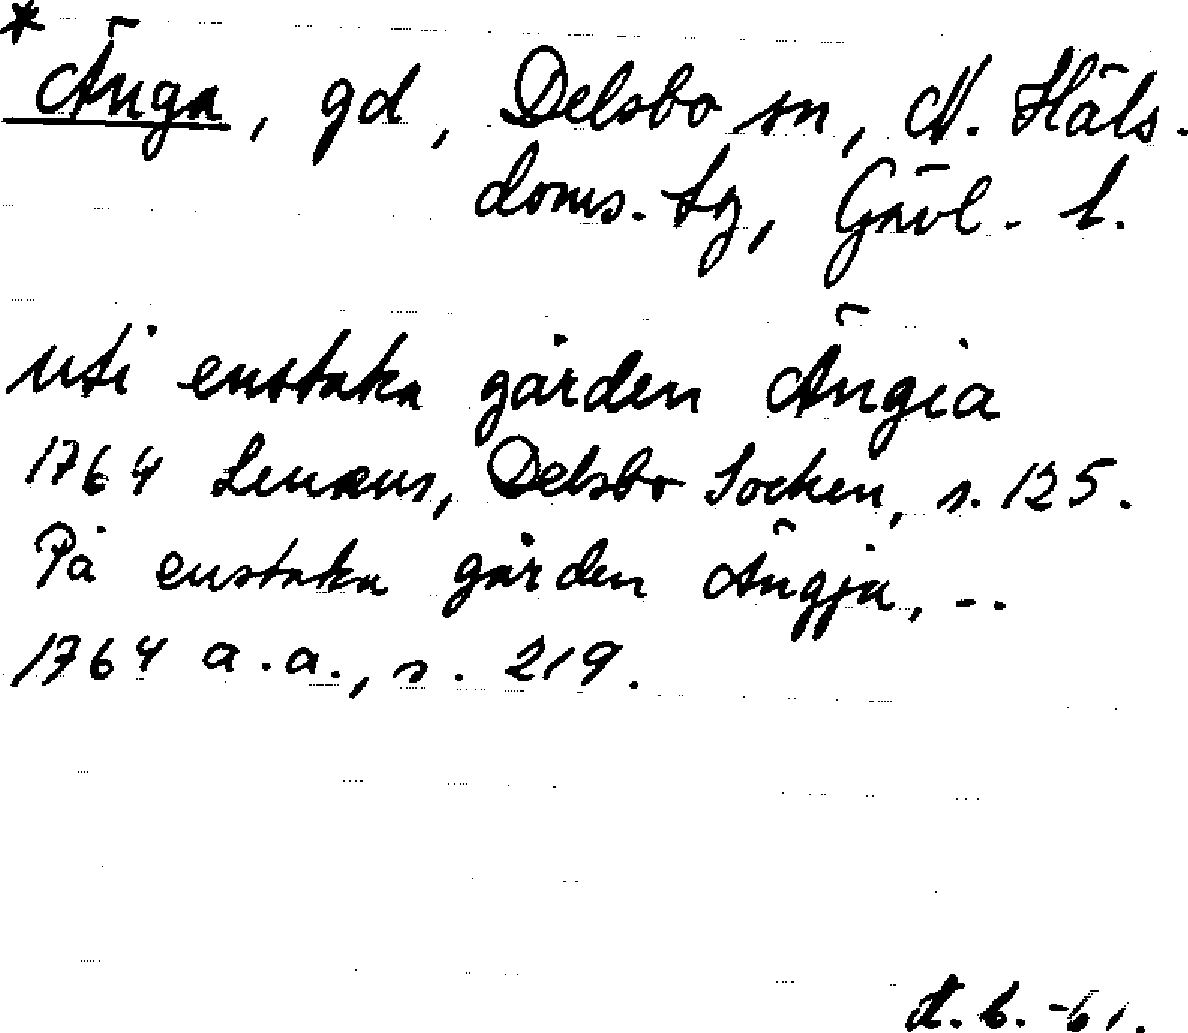 * Änga, gd, Delsbo sn, N. Häls.
doms. tg, Gävl. l.
uti enstaka gården Ängia
1764 Lenæus, Delsbo Socken, s. 125.
På enstaka gården Ängja, --.
1764 a.a., s. 219.
-61.